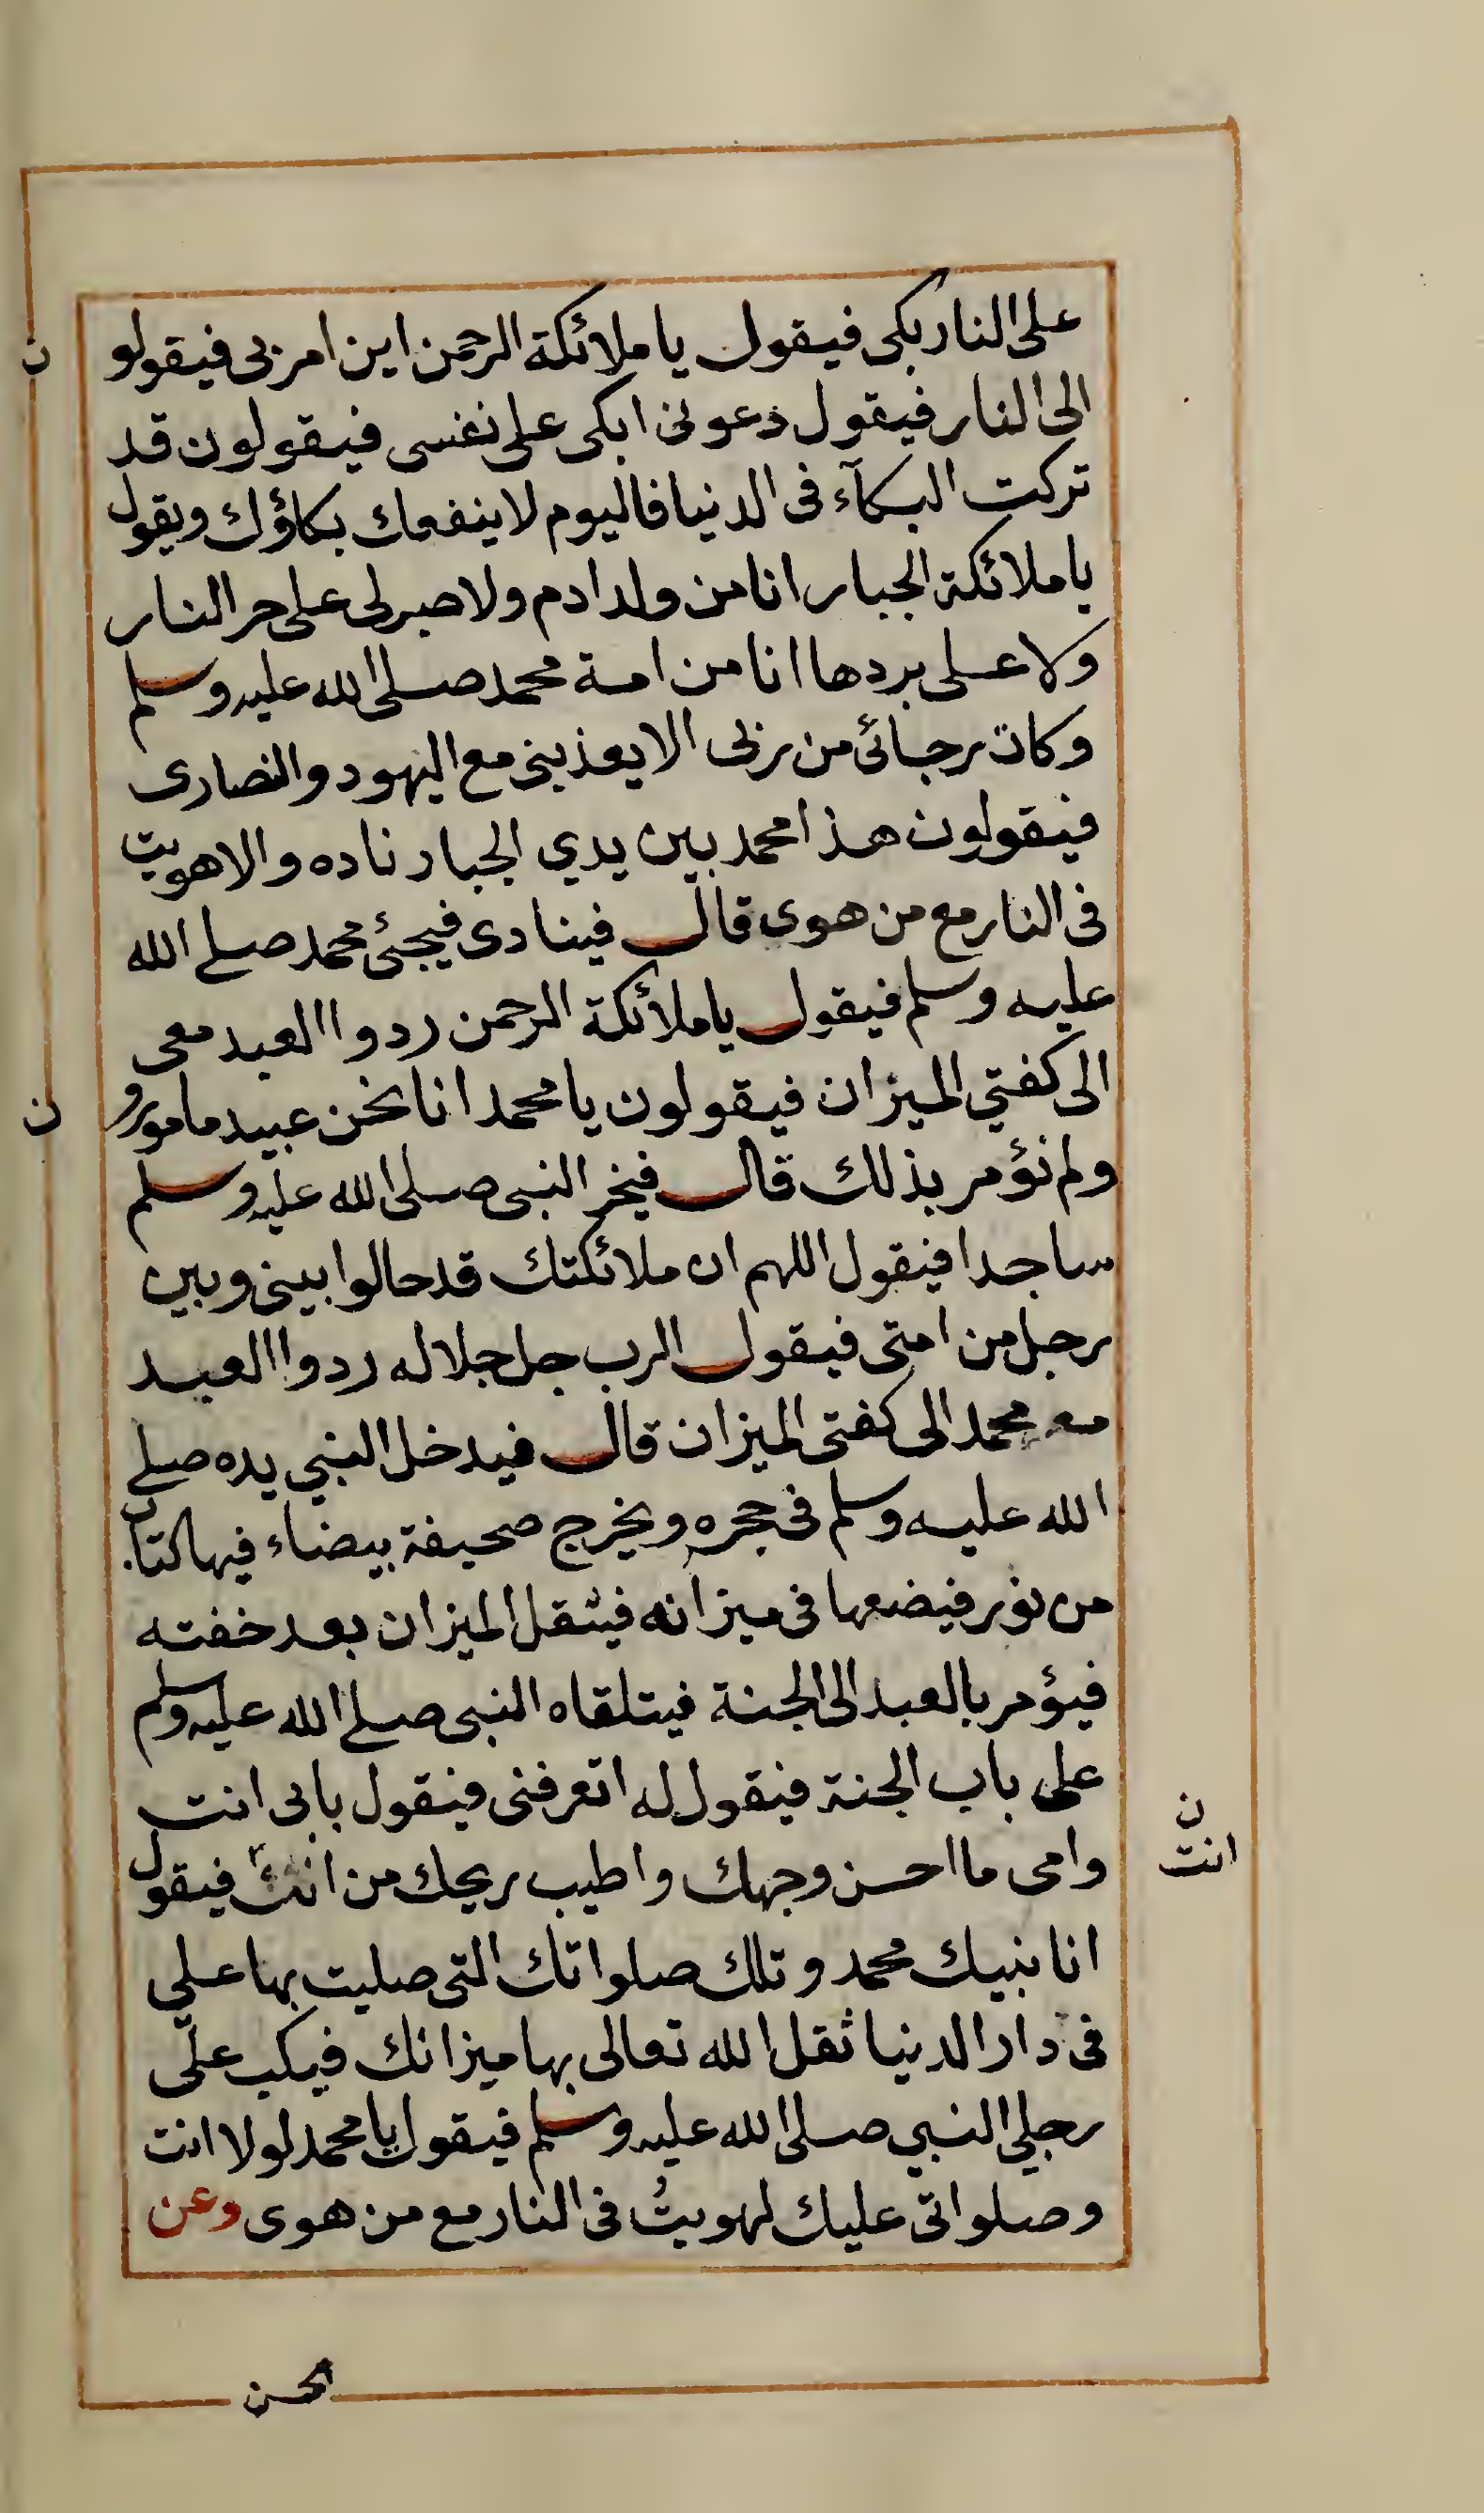 على النار بكى فيقول يا ملائكة الرحمن اين امر بى فيقولو
ن
الى النار فيقول دعونى ابكى على نفسى فيقولون قد
تركت البكآء فى الدنيا فاليوم لا ينفعك بكاؤك ويقول
يا ملائكة الجبار انا من ولد ادم ولا صبر لى على حر النار
ولا على بردها انا من امة محمد صلى الله عليه وسلم
وكان رجائى من ربى الا يعذبنى مع اليهود والنصارى
فيقولون هذا محمد بين يدي الجبار ناده والا هويت
فى النار مع من هوى قال فينادى فيجئ محمد صلى الله
عليه وسلم فيقول يا ملائكة الرحمن ردوا العبد معى
الى كفتي الميزان فيقولون يا محمد انا نحن عبيد مامورو
ن
ولم نؤمر بذلك قال فيخر النبى صلى الله عليه وسلم
ساجدا فيقول اللهم ان ملائكتك قد حالوا بينى وبين
رجل من امتى فيقول الرب جل جلاله ردوا العبد
مع محمد الى كفتى الميزان قال فيدخل النبي يده صلى
الله عليه وسلم فى حجره ويخرج صحيفة بيضاء فيها كتاب
من نور فيضعها فى ميزانه فيثقل الميزان بعد خفته
فيؤمر بالعبد الى الجنة فيتلقاه النبى صلى الله عليه وسلم
على باب الجنة فيقول له اتعرفنى فيقول بابى انت
وامى ما احسن وجهك واطيب ريحك من انت فيقول
ن
انت
انا نبيك محمد وتلك صلواتك التى صليت بها علي
فى دار الدنيا ثقل الله تعالى بها ميزانك فيكب على
رجلي النبي صلى الله عليه وسلم فيقول يا محمد لولا انت
وصلواتى عليك لهويتُ فى النار مع من هوى وعن
الحسن